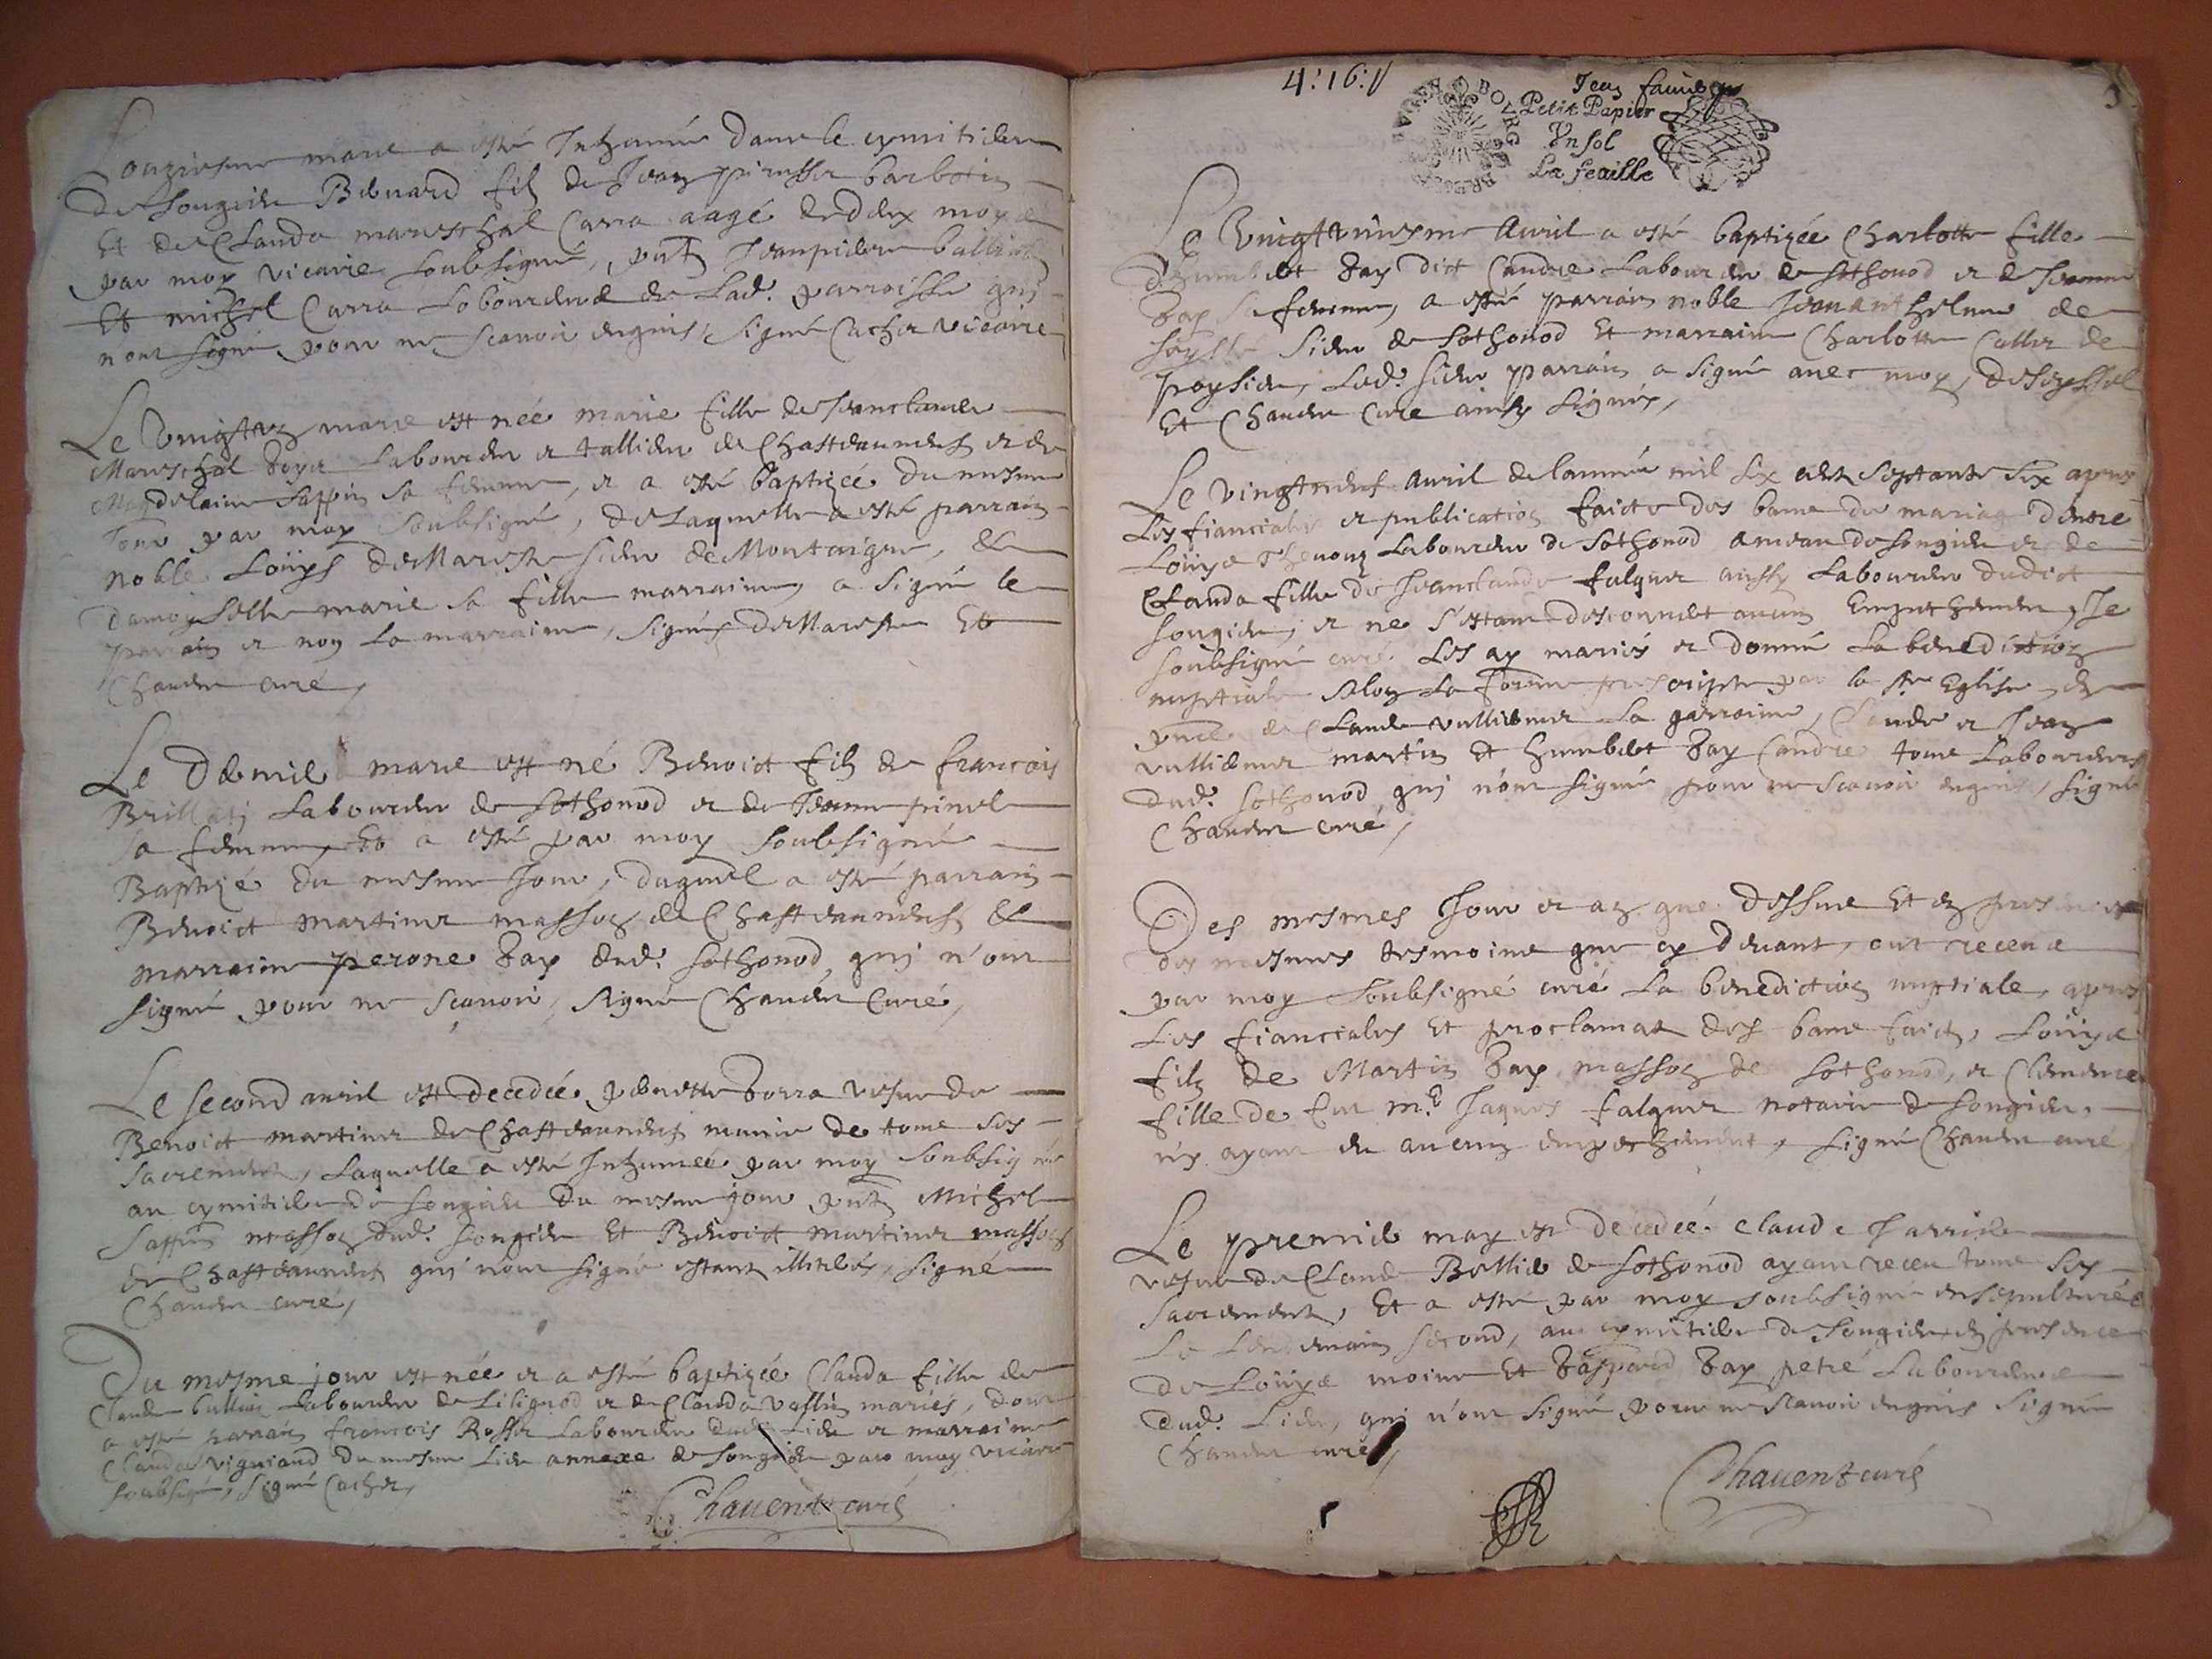 Lonziesme mars a esté Inhumé dans le cymitiere
de Songieu Benoard filz de Jean pierosser barbotin
Et de Clauda mareschal Carra aagé de deux moys
par moy vicaire soubsigné, pnts Jeanpierre balliod
Et michel Carra Laboureurs de Lad. parroisse qui
nont signé pour ne scavoir enquis, signé Cacher vicaire
Le vingtun mars est née marie fille de Jeanclaude
Mareschal Labourdeur et tallieur de Chasteauneuf et de
Magdelaine Sappin sa femme, et a esté baptizée du mesme
Jour par moy soubsigné, de Laquelle a esté parrain
noble Loüys de Mareste sieur de Montaigre, &
damoyselle marie sa fille marraine, a signé le
parrain et non La marraine, signés de Mareste Et
Chauent curé,
Le Dernier mars est né Benoict filz de françois
Brillat Laboureur de Sothonod et de Jeanne pinel
sa femme, Et a esté par moy soubsigné
Baptizé du mesme Jour, duquel a esté parrain
Benoict martiner masson de Chasteauneuf, &
marraine perone Bay dud. Sothonod, qui n'ont
signé pour ne scavoir, signé Chauent Curé,
Le second avril est decedée pernette Borra vefve de
Benoict martiner de Chasteauneuf munie de tous ses
sacrements, Laquelle a esté Inhumée par moy soubsigné
au cymitiere de Songieu du mesme jour pnts Michel
Sappin masson dud. Songieu Et Benoict martiner masson
de Chasteauneuf qui nont signé estant illiterés, signé
Chauent curé,
Du mesme jour est née et a esté baptizée Clauda fille de
Claude bullin Laboureur de Lilignod et de Clauda vassin mariés, dont
a esté parrain francois Rosser Laboureur dud. Lieu et marraine
Clauda vigniand du mesme Lieu annexe de Songieu par moy vicaire
soubsigné, signé Cacher,
Chauent curé
4:16:
Petit Papier
Vn sol
La feuille
Le Vingtuniesme Avril a esté baptizée Charlotte fille
d'humbert Bay dict Candre Laboureur de Sothonod et de Jeanne
Bay sa femme, a esté parrain noble Jeananthelme de
Seyssel Sieur de Sothonod Et marraine Charlotte Coller de
poysieu, Led. sieur parrain a signé avec moy, de Seyssel
Et Chauent Curé ainsy signés,
Le vingtneuf avril de lannée mil six cents septante six apres
Les fiancialles et publication faicte des bans de mariage dentre
Loüys Thevenon Laboureur de Sothonod ameau de Songieu et de
Clauda fille de Jeanclaude falquer aussy Laboureur dudict
Songieu, et ne sestant descouvert aucun Empechement, Je
soubsigné curé Les ay mariés et donné La benediction
nuptiale selon La forme prescripte par la ste Eglise, en
pnce de Claude vulliemer La garraine, Claude et Jean
vulliemer martin Et humbert Bay Candre tous Laboureurs
dud. Sothonod, qui n'ont signé pour ne scavoir enquis, signé
Chauent curé,
Des mesmes Jour et an que dessus Et en presence
des mesmes tesmoins que cy devant, ont receus
par moy soubsigné curé La benediction nuptiale, apres
Les fiancialles Et proclamats des bans faicts, Loüys
filz de Martin Bay masson de Sothonod, et Clemence
fille de feu me Jaques falquer notaire de Songieu,
n'y ayant eu aucung empechement, signé Chauent curé
Le premier may est decedée Claude Jarrier
vefve de Claude Bellier de Sothonod ayant receu tous ses
sacrements, Et a esté par moy soubsigné ensepulturée
Le Lendemain second, au cymitiere de Songieu en presence
de Loüys moine Et Gaspard Bay petré Laboureurs
dud. Lieu, qui n'ont signé pour ne scavoir enquis signé
Chauent curé,
Chauent curé